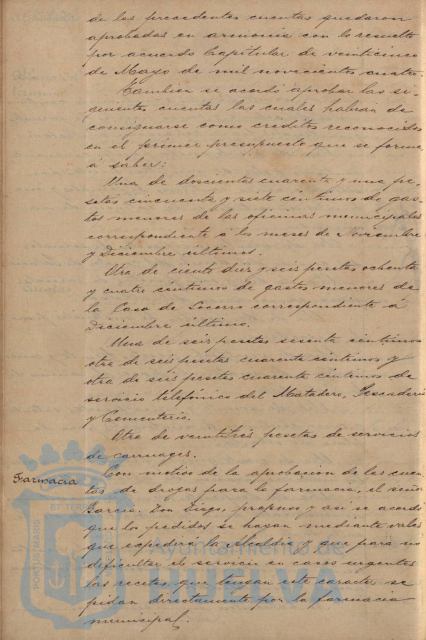 de las precedentes cuentas quedaron
aprobadas en armonia con lo resuelto
por acuerdo Capitular de veinticinco
de Mayo de mil novecientos cuatro.
Tambien se acordó aprobar las si-
guientes cuentas las cuales habrán de
consignarse como créditos reconocidos
en el primer presupuesto que se forme,
á saber:
Una de doscientas cuarenta y una pe-
setas cincuenta y siete céntimos de gas-
tos menores de las oficinas municipales
correspondiente á los meses de Noviembre
y Diciembre últimos.
Otra de ciento diez y seis pesetas ochenta
y cuatro céntimos de gastos menores de
la Casa de Socorro correspondiente á
Diciembre último.
Una de seis pesetas sesenta céntimos
otra de seis pesetas cuarenta céntimos y
otra de seis pesetas cuarenta céntimos de
servicio telefónico del Matadero, Pescaderia
y Cementerio.
Otra de veintitres pesetas de servicios
de carruages.
Farmacia
Con motivo de la aprobacion de las cuen-
tas de drogas para la farmacia, el señor
Garcia propuso y asi se acordó
que los pedidos se hagan mediante vales
que expedirá la Alcaldia y que para no
dificultar el servicio en casos urgentes
las recetas que tengan este caracter se
pidan directamente por la farmacia
municipal.
Ayuntamiento de
HUELVA